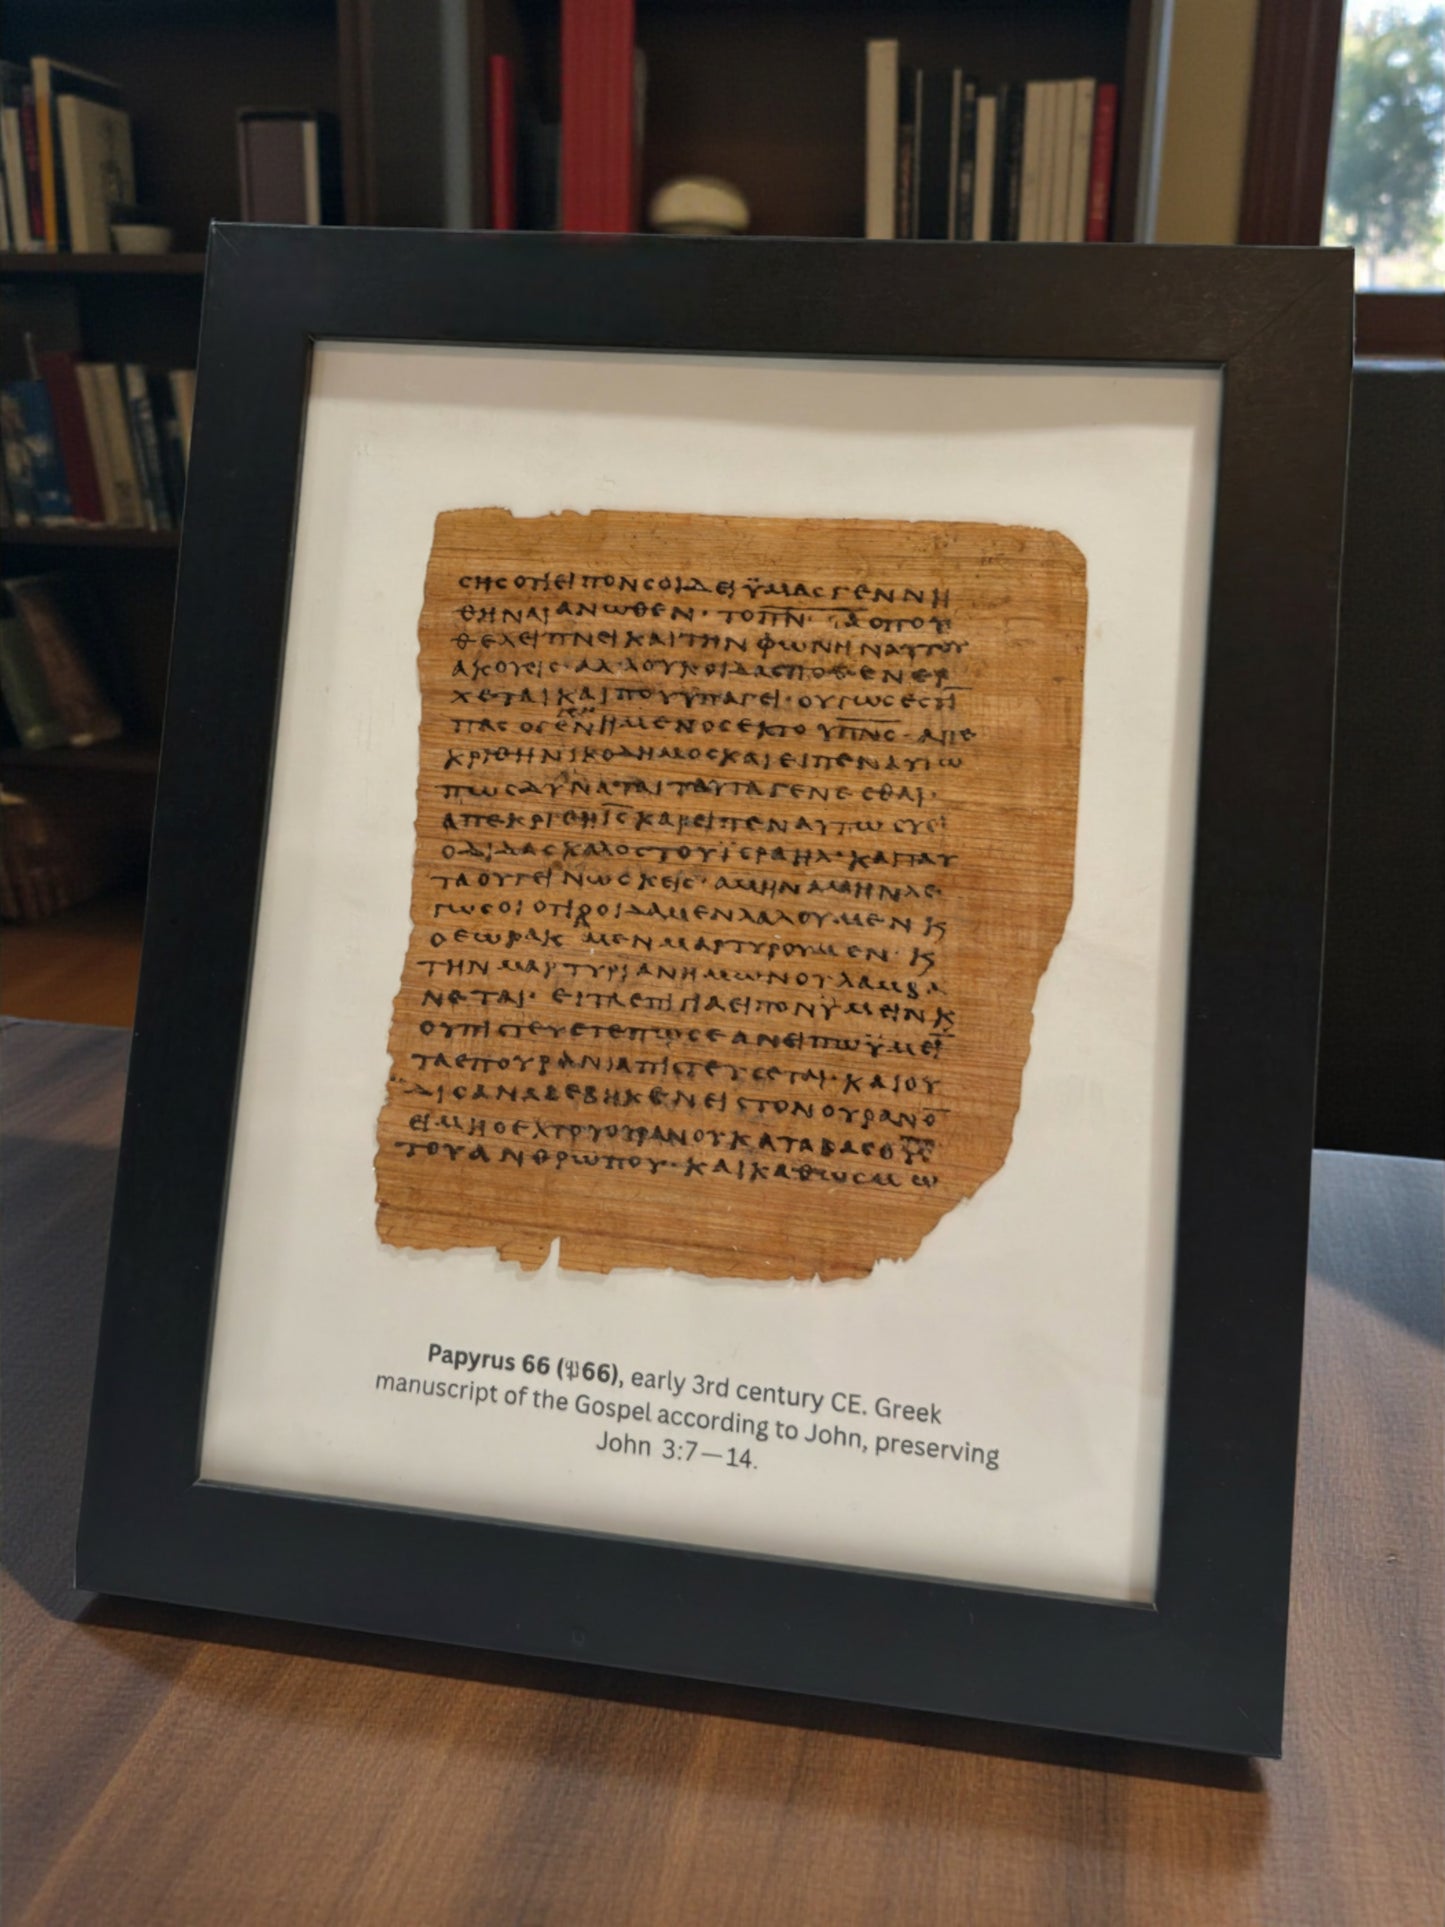 ϹΗϹΟΤΙΕΙΠΟΝϹΟΙΔΕΙΫΜΑϹΓΕΝΝΗ
ΘΗΝΑΙΑΝΩΘΕΝ· ΤΟΠ̅Ν̅Α̅ΟΠΟΥ
ΘΕΛΕΙΠΝΕΙΚΑΙΤΗΝΦΩΝΗΝΑΥΤΟΥ
ΑΚΟΥΕΙϹ·ΑΛΛΟΥΚΟΙΔΑϹΠΟΘΕΝΕΡ
ΧΕΤΑΙΚΑΙΠΟΥΫΠΑΓΕΙ·ΟΥΤΩϹΕϹΤΙ̅
ΠΑϹΟΓΕΓΕΝΝΗΜΕΝΟϹΕΚΤΟΥΠ̅Ν̅Ϲ̅·ΑΠΕ
ΚΡΙΘΗΝΙΚΟΔΗΜΟϹΚΑΙΕΙΠΕΝΑΥΤΩ
ΠΩϹΔΥΝΑΤΑΙΤΑΥΤΑΓΕΝΕϹΘΑΙ·
ΑΠΕΚΡΙΘΗΙ̅Ϲ̅ΚΑΙΕΙΠΕΝΑΥΤΩϹΥΕΙ
ΟΔΙΔΑϹΚΑΛΟϹΤΟΥΪϹΡΑΗΛ·ΚΑΙΤΑΥ
ΤΑΟΥΓΕΙΝΩϹΚΕΙϹ·ΑΜΗΝΑΜΗΝΛΕ
ΓΩϹΟΙΟΤΙΟΟΙΔΑΜΕΝΛΑΛΟΥΜΕΝΚ
ΟΕΩΡΑΚΑΜΕΝΜΑΡΤΥΡΟΥΜΕΝ·Κ
ΤΗΝΜΑΡΤΥΡΙΑΝΗΜΩΝΟΥΛΑΜΒΑ
ΝΕΤΑΙ· ΕΙΤΑΕΠΙΓΙΑΕΙΠΟΝΫΜΕΙΝΚ
ΟΥΠΙϹΤΕΥΕΤΕΠΩϹΕΑΝΕΙΠΩΫΜΕΙ̅
ΤΑΕΠΟΥΡΑΝΙΑΠΙϹΤΕΥϹΕΤΑΙ·ΚΑΙΟΥ
ΔΙϹΑΝΑΒΕΒΗΚΕΝΕΙϹΤΟΝΟΥΡΑΝΟ̅
ΕΙΜΗΟΕΚΤΟΥΟΥΡΑΝΟΥΚΑΤΑΒΑϹΟΥ̅Ϲ̅
ΤΟΥΑΝΘΡΩΠΟΥ·ΚΑΙΚΑΘΩϹΜΩ
Papyrus 66 (𝔓66), early 3rd century CE. Greek
manuscript of the Gospel according to John, preserving
John 3:7—14.